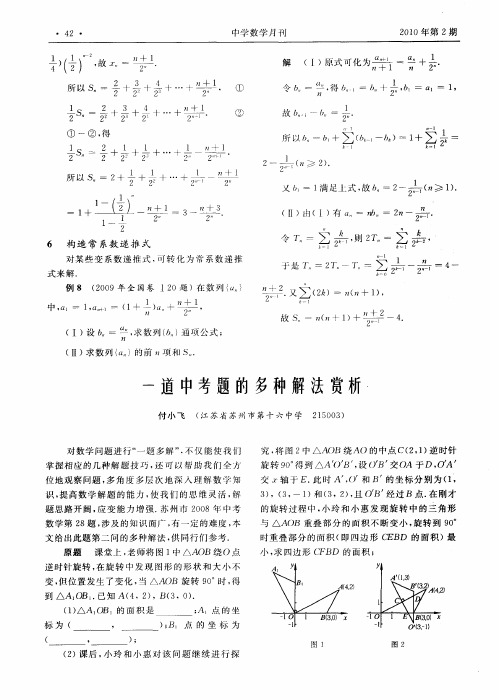 · 42 ·
中学数学月刊
2010 年第 2 期
1/4)(1/2)^{n-2}, 故 x_n = (n+1)/2^n.
所以 S_n = 2/2 + 3/2^2 + 4/2^3 + ⋯ + (n+1)/2^n, ①
1/2 S_n = 2/2^2 + 3/2^3 + 4/2^4 + ⋯ + (n+1)/2^{n+1}. ②
① − ②, 得
所以 S_n = 2 + 1/2 + 1/2^2 + ⋯ + 1/2^{n-1} − (n+1)/2^n
= 3 − (n+3)/2^n.
6 构造常系数递推式
对某些变系数递推式, 可转化为常系数递推
式来解.
例 8 (2009 年全国卷 Ⅰ 20 题) 在数列 {a_n}
中, a_1 = 1, a_{n+1} = (1 + 1/n)a_n + (n+1)/2^n.
(Ⅰ) 设 b_n = a_n/n, 求数列 {b_n} 通项公式;
(Ⅱ) 求数列 {a_n} 的前 n 项和 S_n.
解 (Ⅰ) 原式可化为 a_{n+1}/(n+1) = a_n/n + 1/2^n.
令 b_n = a_n/n, 得 b_{n+1} = b_n + 1/2^n, b_1 = a_1 = 1,
故 b_{n+1} − b_n = 1/2^n.
2 − 1/2^{n-1} (n ≥ 2).
又 b_1 = 1 满足上式, 故 b_n = 2 − 1/2^{n-1} (n ≥ 1).
(Ⅱ) 由 (Ⅰ) 有 a_n = nb_n = 2n − n/2^{n-1}.
令 T_n = ∑_{k=1}^{n} k/2^{k-1}, 则 2T_n = ∑_{k=1}^{n} k/2^{k-2},
于是 T_n = 2T_n − T_n = ∑_{k=0}^{n-1} 1/2^{k-1} − n/2^{n-1} = 4 −
(n+2)/2^{n-1}. 又 ∑_{k=1}^{n} (2k) = n(n+1),
故 S_n = n(n+1) + (n+2)/2^{n-1} − 4.
一道中考题的多种解法赏析
付小飞 (江苏省苏州市第十六中学 215003)
对数学问题进行“一题多解”, 不仅能使我们
掌握相应的几种解题技巧, 还可以帮助我们全方
位地观察问题, 多角度多层次地深入理解数学知
识, 提高数学解题的能力, 使我们的思维灵活, 解
题思路开阔, 应变能力增强. 苏州市 2008 年中考
数学第 28 题, 涉及的知识面广, 有一定的难度, 本
文给出此题第二问的多种解法, 供同行们参考.
原题 课堂上, 老师将图 1 中 △AOB 绕 O 点
逆时针旋转, 在旋转中发现图形的形状和大小不
变, 但位置发生了变化, 当 △AOB 旋转 90° 时, 得
到 △A_1OB_1. 已知 A(4, 2), B(3, 0).
(1) △A_1OB_1 的面积是 ____; A_1 点的坐
标为 (____, ____); B_1 点的坐标为
(____, ____);
(2) 课后, 小玲和小惠对该问题继续进行探
究, 将图 2 中 △AOB 绕 AO 的中点 C(2, 1) 逆时针
旋转 90° 得到 △A′O′B′, 设 O′B′ 交 OA 于 D, O′A′
交 x 轴于 E. 此时 A′, O′ 和 B′ 的坐标分别为 (1,
3), (3, −1) 和 (3, 2), 且 O′B′ 经过 B 点. 在刚才
的旋转过程中, 小玲和小惠发现旋转中的三角形
与 △AOB 重叠部分的面积不断变小, 旋转到 90°
时重叠部分的面积 (即四边形 CEBD 的面积) 最
小, 求四边形 CEBD 的面积;
y A_1 B_1 A(4,2) -1 O 1 B(3,0) x -1
图 1
y A′(1,3) B′(3,2) A(4,2) C D -1 O 1 E B(3,0) x -1 O′(3,-1)
图 2